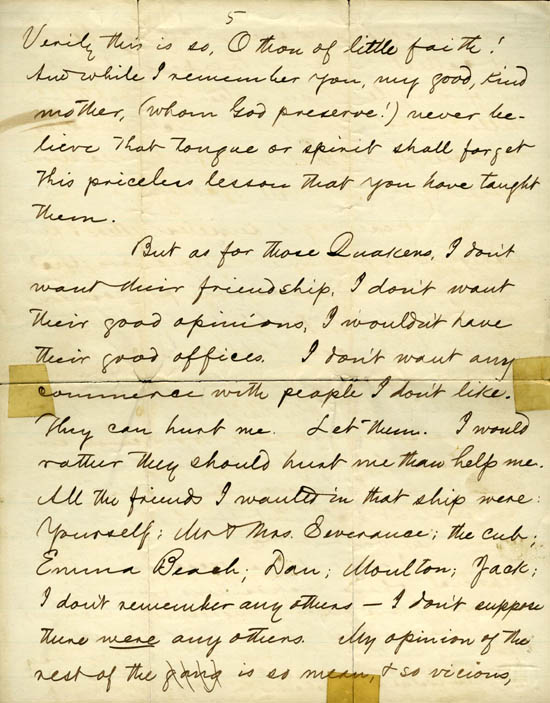 5
Verily this is so, O thou of little faith!
And while I remember you, my good, kind
mother, (whom God preserve!) never be-
lieve that tongue or spirit shall forget
this priceless lesson that you have taught
them.
But as for those Quakers, I don't
want their friendship, I don't want
their good opinions, I wouldn't have
their good offices. I don't want any
commerce with people I don't like.
They can hurt me. Let them. I would
rather they should hurt me than help me.
All the friends I wanted in that ship were:
Yourself; Mr & Mrs. Severance; the cub;
Emma Beach; Dan; Moulton; Jack;
I don't remember any others — I don't suppose
there were any others. My opinion of the
rest of the gang is so mean, & so vicious,